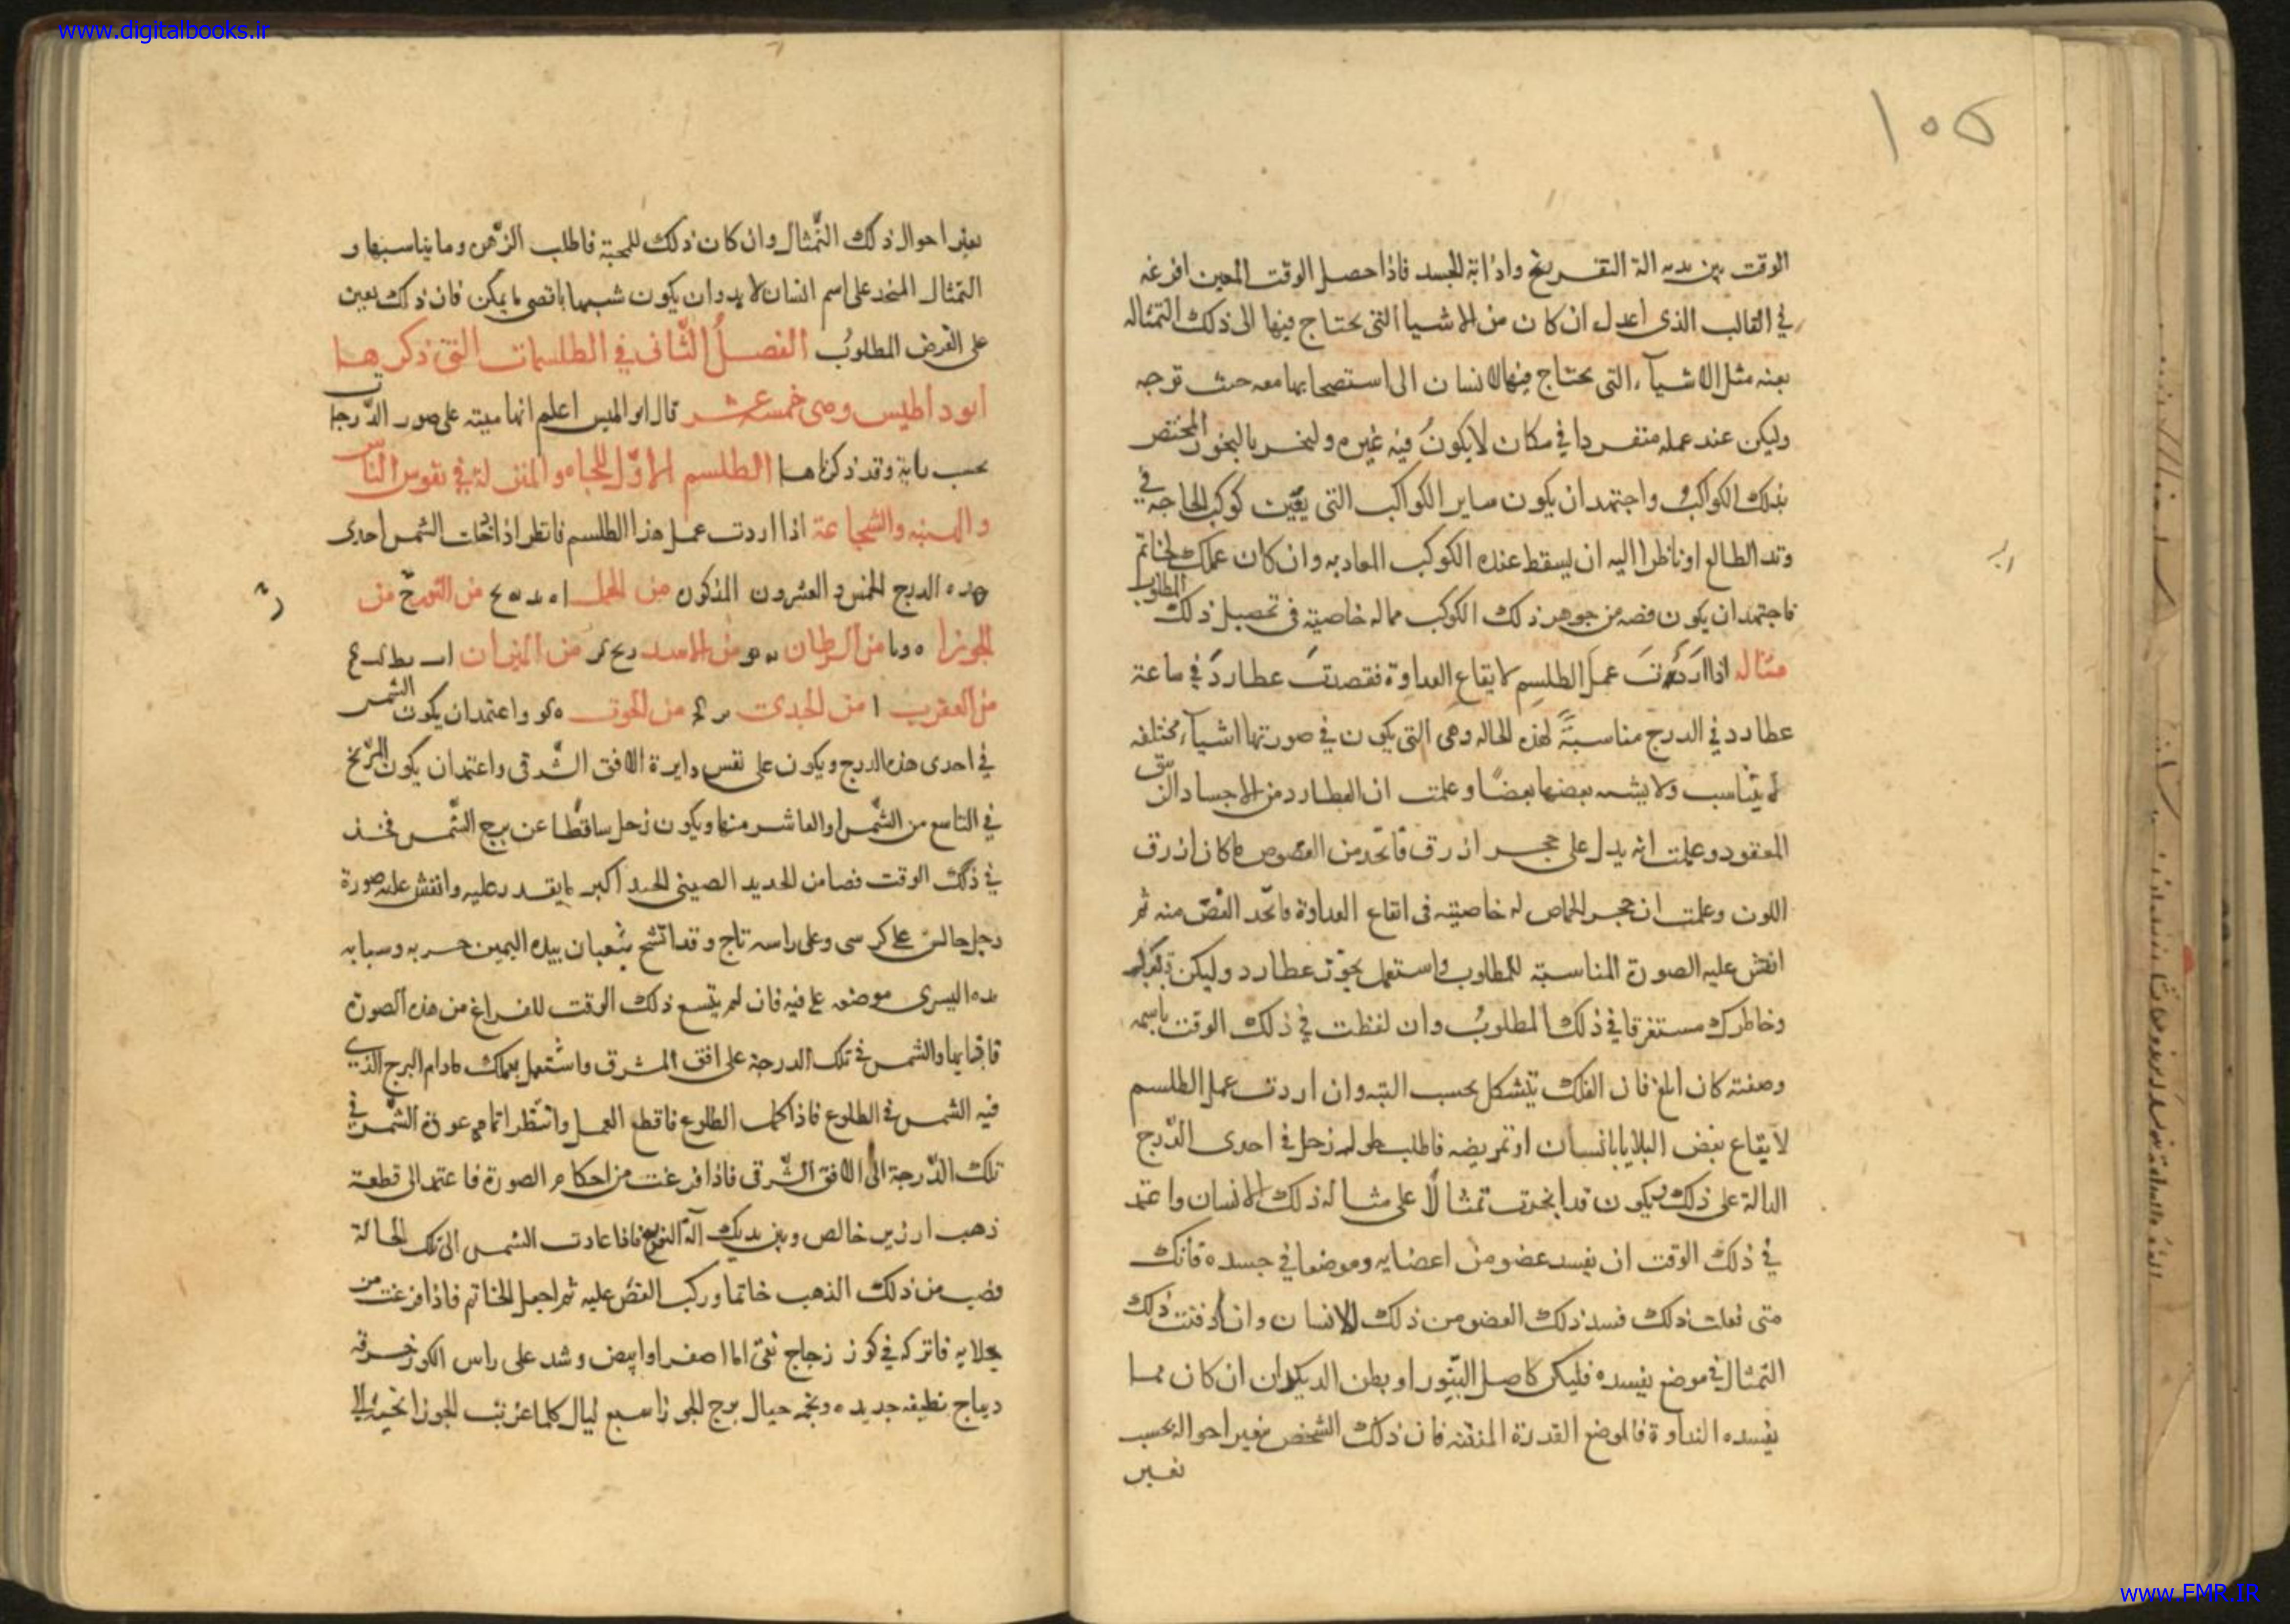 www.digitalbooks.ir
١٥٥
الوقت بين يديه الة التفريغ واذابة الجسد فاذا حصل الوقت المعين افرغه
في القالب الذى اعدل ان كان من الاشيا التى يحتاج فيها الى ذلك التمثاله
بعنه مثل الاشيآء التى يحتاج فيها الانسان الى استصحابها معه حيث توجه
وليكن عند عمله منفردا في مكان لا يكون فيه غيره وليبخر بالبخور المختص
بذلك الكواكب واجتهد ان يكون ساير الكواكب التى يعين كوكب الحاجه في
وتد الطالع او ناظرا اليه ان يسقط عنده الكوكب المعاديه وان كان عملك لخاتم
فاجتهد ان يكون فصه من جوهر ذلك الكوكب مماله خاصية فى تحصيل ذلك المطلوب
مثاله اذا اردت عمل الطلسم لايقاع العداوة فقصدت عطارد في ساعة
عطارد في الدرج مناسبة لهذه الحاله وهى التى يكون في صورتها اشيآء مختلفه
لا يتناسب ولا يشبه بعضها بعضا وعلمت ان العطارد من الاجساد الزيبق
المعقود وعلمت انه يدل على حجر ازرق فاتخذ من الفصوص ما كان ازرق
اللون وعلمت ان حجر الماص له خاصيته فى ايقاع العداوة فاتخذ الفص منه ثم
انقش عليه الصورة المناسبة للمطلوب واستعمل بخور عطارد وليكن
وخاطرك مستغرقا في ذلك المطلوب وان لفظت في ذلك الوقت باسمه
وصفته كان ابلغ فان الفلك يتشكل بحسب النيه وان اردت عمل الطلسم
لايقاع بعض البلايا بانسان او تمريضه فاطلب طول زحل في احدى الدرج
الدالة على ذلك ويكون قد اتخذت تمثالا على مثاله ذلك الانسان واعتمد
في ذلك الوقت ان يفسد عضو من اعضايه وموضعا في جسده فانك
متى فعلت ذلك فسد ذلك العضو من ذلك الانسان وان دفنت ذلك
التمثال في موضع يفسده فليكن كاصل التنور او بطن الديكدان ان كان مما
يفسده النداوة فالموضع القذرة المنتنه فان ذلك الشخص يتغير احواله بحسب
تغير
تغير احوال ذلك التمثال وان كان ذلك للمحبة فاطلب الزهرة وما يناسبها و
التمثال المتخذ على اسم انسان لا بد وان يكون شبيها باقصى ما يمكن فان ذلك يعين
على الغرض المطلوب الفصل الثانى في الطلسمات التى ذكرها
ابوداطيس وهى خمسة عشر قال اعلم انها مبنيه على صور الدرجات
بحسب وقد ذكرناها الطلسم الاول للجاه والمنزلة في نفوس الناس
والهيبه والشجاعة اذا اردت عمل هذا الطلسم فانظر اذا كانت الشمس احدى
هذه الدرج الخمس والعشرون المذكورة من الحمل من الثور من
الجوزا من السرطان من الاسد من الميزان
من العقرب من الجدى من الحوت واعتمد ان يكون الشمس
في احدى هذه الدرج ويكون على نفس دايرة الافق الشرقى واعتمد ان يكون المريخ
في التاسع من الشمس او العاشر منها ويكون زحل ساقطا عن برج الشمس فخذ
في ذلك الوقت فصا من الحديد الصينى الجيد اكبر ما يقدر عليه وانقش عليه صورة
رجل جالس على كرسى وعلى راسه تاج وقد اتشح بثعبان بيده اليمين حربه وسبابه
يده اليسرى موضوعه على فيه فان لم يتسع ذلك الوقت للفراغ من هذه الصورة
فابدا بها والشمس فى تلك الدرجة على افق المشرق واشتغل بعملك مادام البرج الذى
فيه الشمس فى الطلوع فاذا كمل الطلوع فاقطع العمل وانتظر اتمامه عودة الشمس فى
تلك الدرجة الى الافق الشرقى فاذا فرغت من احكام الصورة فاعتمد الى قطعة
ذهب ابريز خالص وبين يديك آلة التفريغ فاذا عادت الشمس الى تلك الحالة
فصب من ذلك الذهب خاتما وركب الفص عليه ثم اجعل الخاتم فاذا فرغت من
جلايه فاتركه في كوز زجاج نقى اما اصفر او ابيض وشد على راس الكوز خرقه
ديباج نظيفه جديده ونجمه حيال برج الجوزا سبع ليال كلما غربت الجوزا نحيته الى
www.FMR.IR